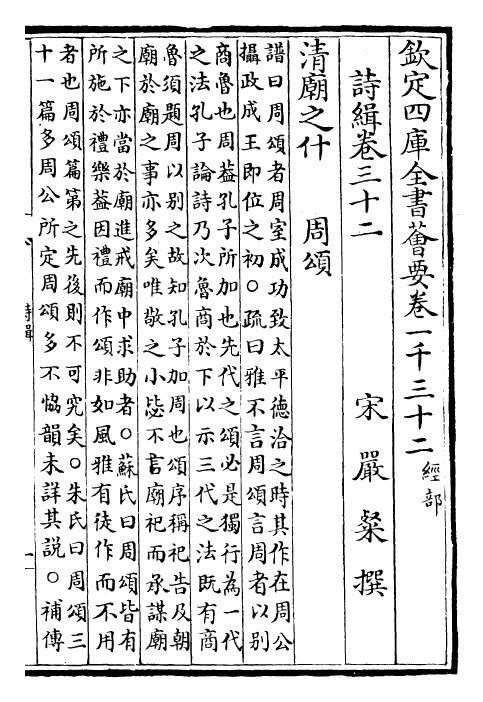 欽定四庫全書薈要卷一千三十二 經部
詩緝卷三十二 宋 嚴 粲 撰
清廟之什 周頌
譜曰周頌者周室成功致太平德洽之時其作在周公
攝政成王即位之初○疏曰雅不言周頌言周者以別
商魯也周葢孔子所加也先代之頌必是獨行為一代
之法孔子論詩乃次魯商於下以示三代之法既有商
魯須題周以別之故知孔子加周也頌序稱祀告及朝
廟於廟之事亦多矣唯敬之小毖不言廟祀而承謀廟
之下亦當於廟進戒廟中求助者○蘇氏曰周頌皆有
所施於禮樂葢因禮而作頌非如風雅有徒作而不用
者也周頌篇第之先後則不可究矣○朱氏曰周頌三
十一篇多周公所定周頌多不恊韻未詳其說○補傳
詩緝
一